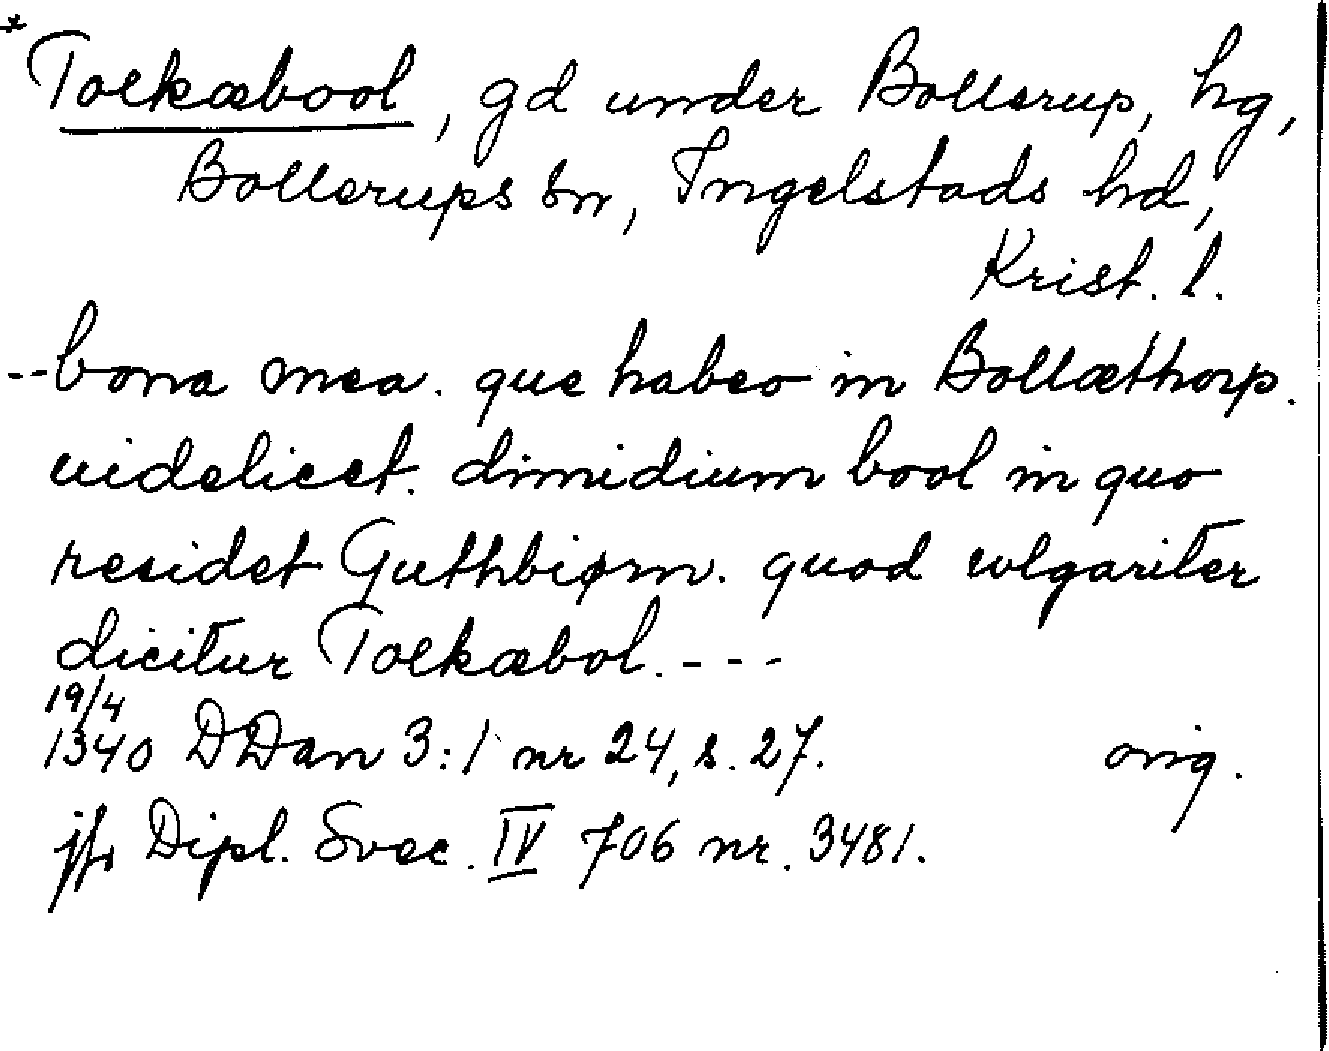 * Tolkæbool, gd under Bollerup, hg,
Bollerups sn, Ingelstads hd,
Krist. l.
-- bona mea. que habeo in Bollæthorp.
uidelicet. dimidium bool in quo
residet Guthbiørn. quod wlgariter
dicitur Tolkæbol. - - -
19/4
1340 DDan 3:1 nr 24, s. 27. orig.
jfr Dipl. Svec. IV 706 nr. 3481.